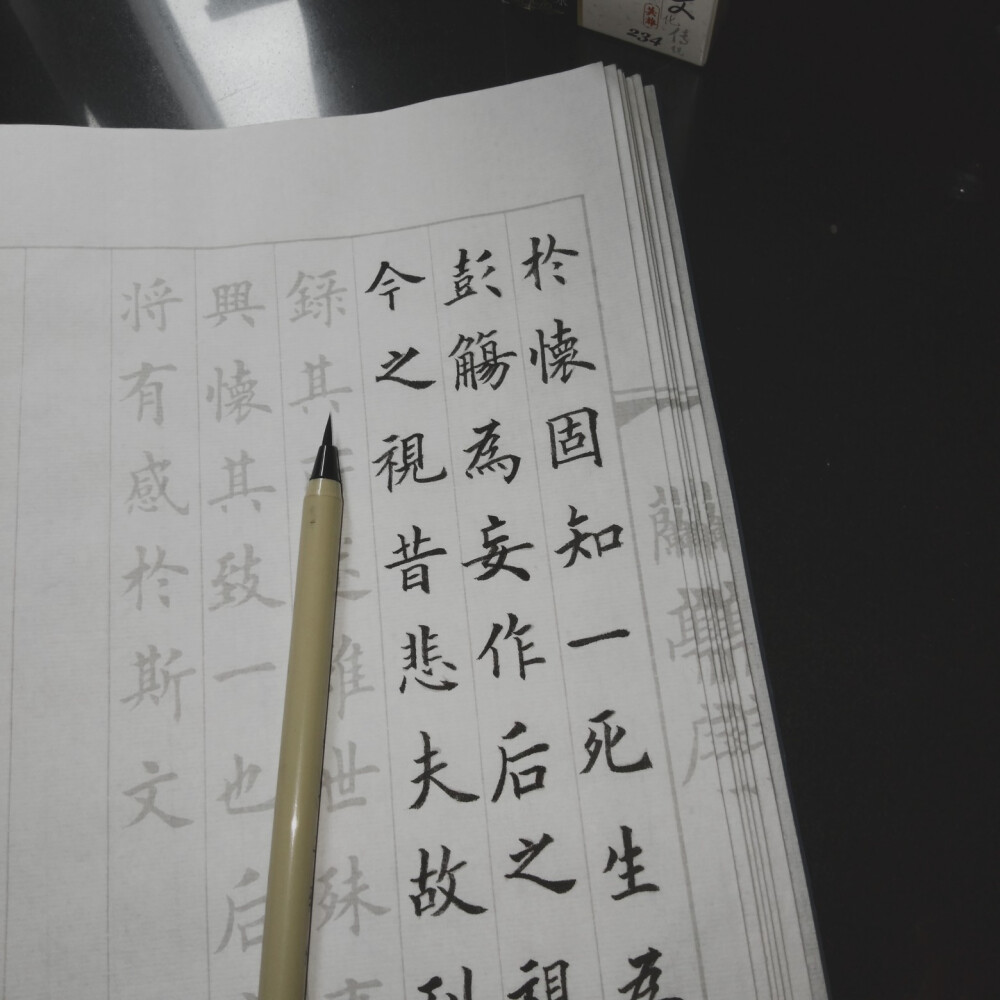 於懷固知一死生為
彭觴為妄作后之視
今之視昔悲夫故列
錄其
興懷其致一也后
将有感於斯文
234